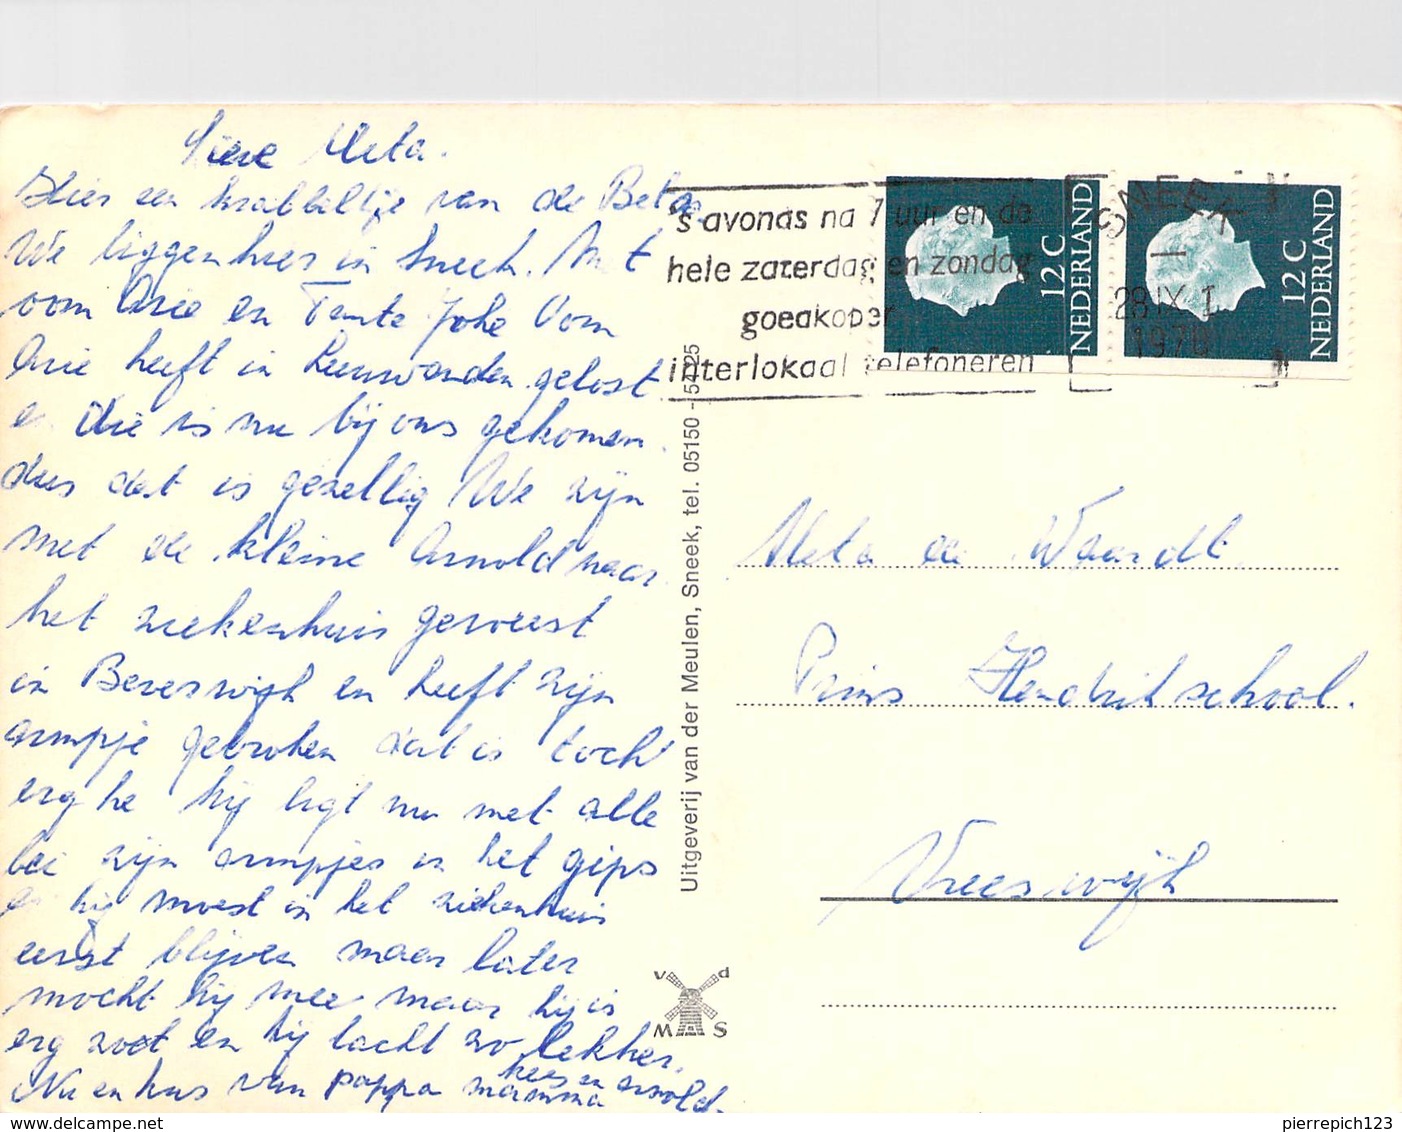 Lieve Meta.
Hier een krabbeltje van de Beta
We liggen hier in Sneek. Met
oom Arie en Tante Joke Oom
Arie heeft in Leeuwarden gelost
en die is nu bij ons gekomen.
dus dat is gezellig We zijn
met de kleine Arnold naar
het ziekenhuis geweest
in Beverwijk en heeft zijn
armpje gebroken dat is toch
erg he hij ligt nu met alle
bei zijn armpjes in het gips
en hij moest in het ziekenhuis
eerst blijven maar later
mocht hij mee maar hij is
erg zoet en hij lacht zo lekker.
Nu en kus van pappa mamma
kees en arnold.
's avonds na 7 uur en de
hele zaterdag en zondag
goedkoper
interlokaal telefoneren
SNEEK
28 IX
1970
12 C
NEDERLAND
12 C
NEDERLAND
Uitgeverij van der Meulen, Sneek, tel. 05150 - 5425
Meta de Waardt
Prins Hendrikschool.
Vreeswijk
v d
M S
pierrepich123